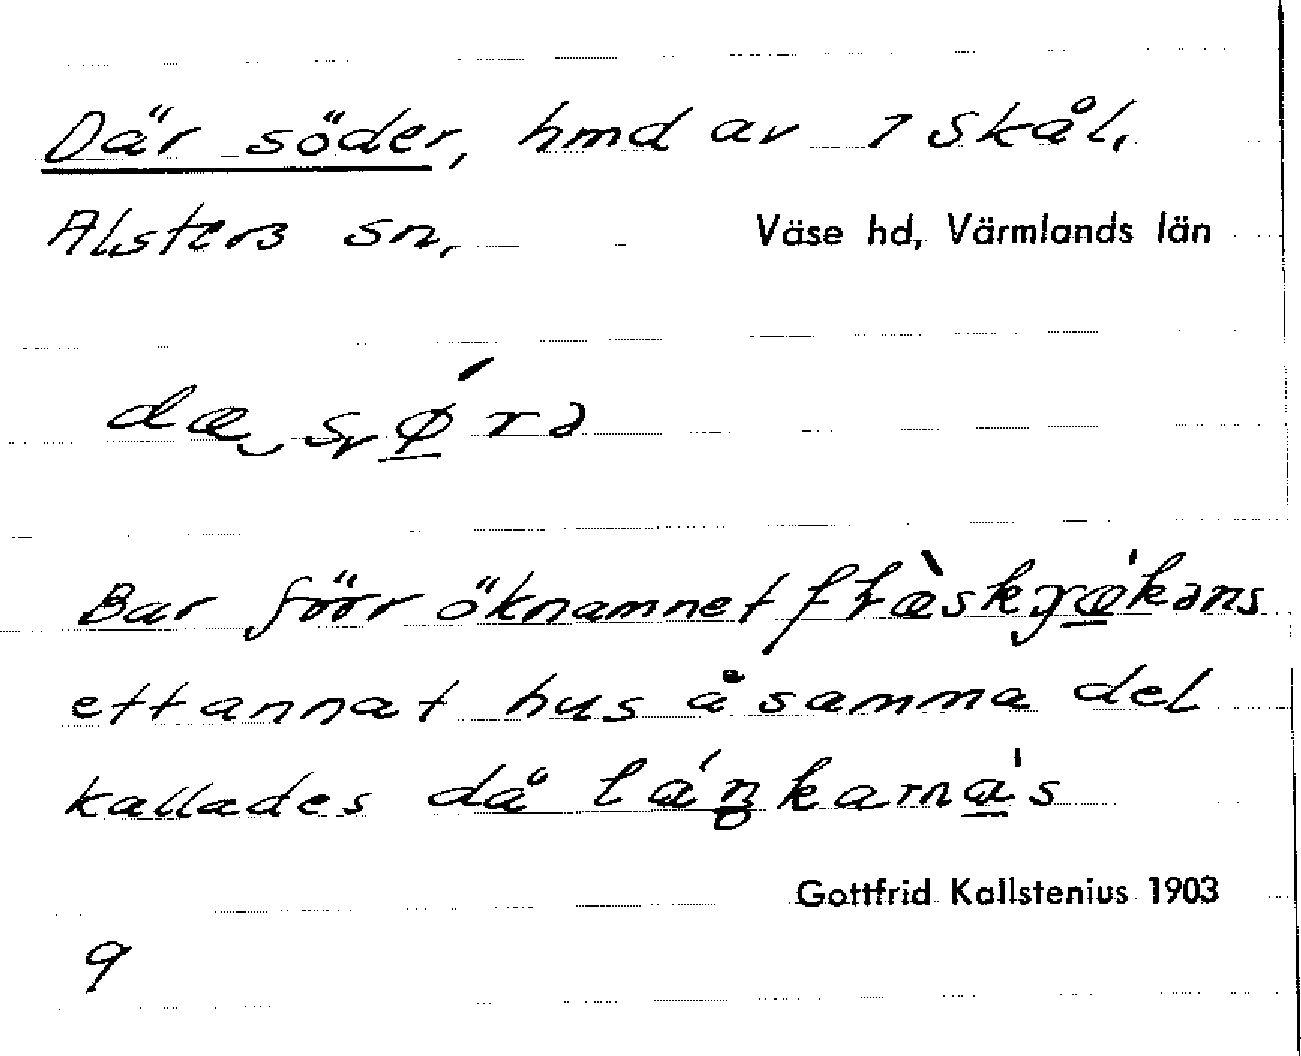 Där söder, hmd av 7 Skål,
Alsters sn, Väse hd, Värmlands län
Bar förr öknamnet
ett annat hus å samma del
kallades då
Gottfrid Kallstenius 1903
9